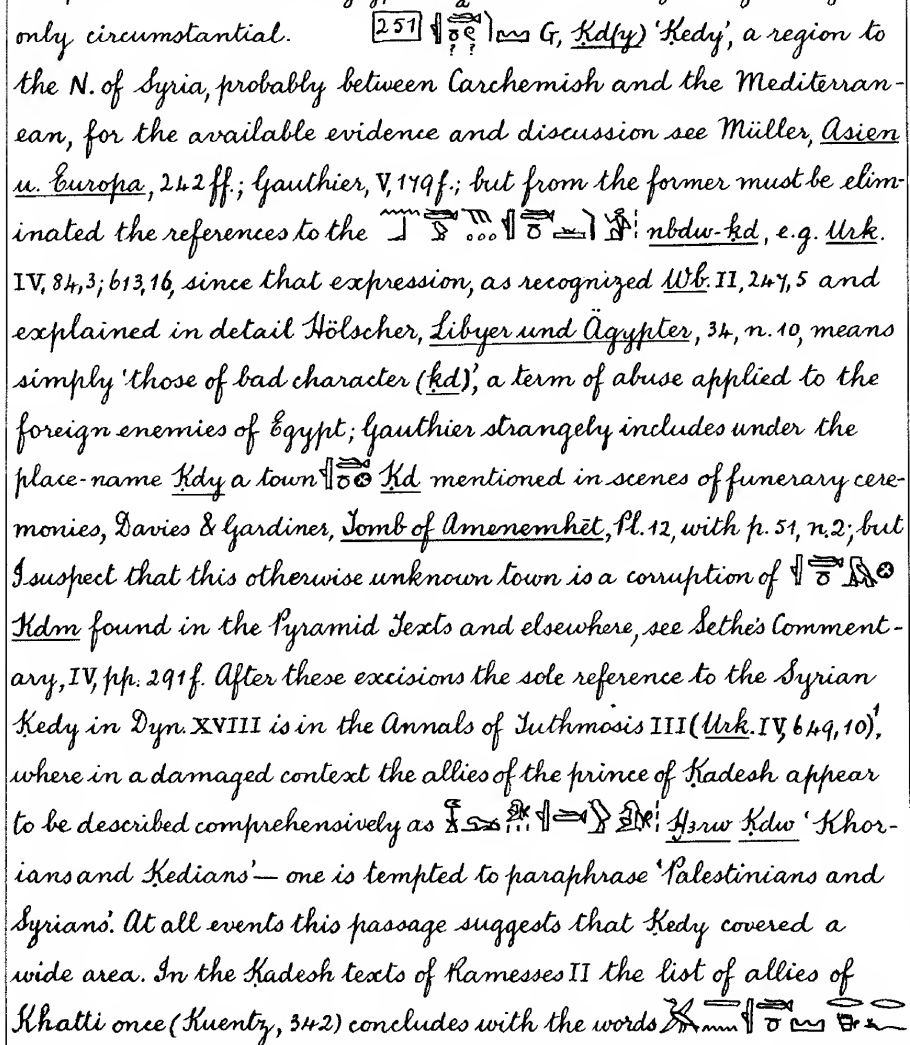 only circumstantial. 251 G, Ḳd(y) ‘Kedy’, a region to
the N. of Syria, probably between Carchemish and the Mediterran-
ean, for the available evidence and discussion see Müller, Asien
u. Europa, 242 ff.; Gauthier, V, 179 f.; but from the former must be elim-
inated the references to the nbdw-ḳd, e.g. Urk.
IV, 84,3; 613,16, since that expression, as recognized Wb. II, 247,5 and
explained in detail Hölscher, Libyer und Ägypter, 34, n. 10, means
simply ‘those of bad character (ḳd)’, a term of abuse applied to the
foreign enemies of Egypt; Gauthier strangely includes under the
place-name Ḳdy a town Ḳd mentioned in scenes of funerary cere-
monies, Davies & Gardiner, Tomb of Amenemhēt, Pl. 12, with p. 51, n. 2; but
I suspect that this otherwise unknown town is a corruption of
Ḳdm found in the Pyramid Texts and elsewhere, see Sethe's Comment-
ary, IV, pp. 291 f. After these excisions the sole reference to the Syrian
Ḳedy in Dyn. XVIII is in the Annals of Tuthmosis III (Urk. IV, 649, 10)¹,
where in a damaged context the allies of the prince of Ḳadesh appear
to be described comprehensively as Ḫꜣrw Ḳdw ‘Khor-
ians and Ḳedians’ — one is tempted to paraphrase ‘Palestinians and
Syrians’. At all events this passage suggests that Ḳedy covered a
wide area. In the Ḳadesh texts of Ramesses II the list of allies of
Khatti once (Kuentz, 342) concludes with the words